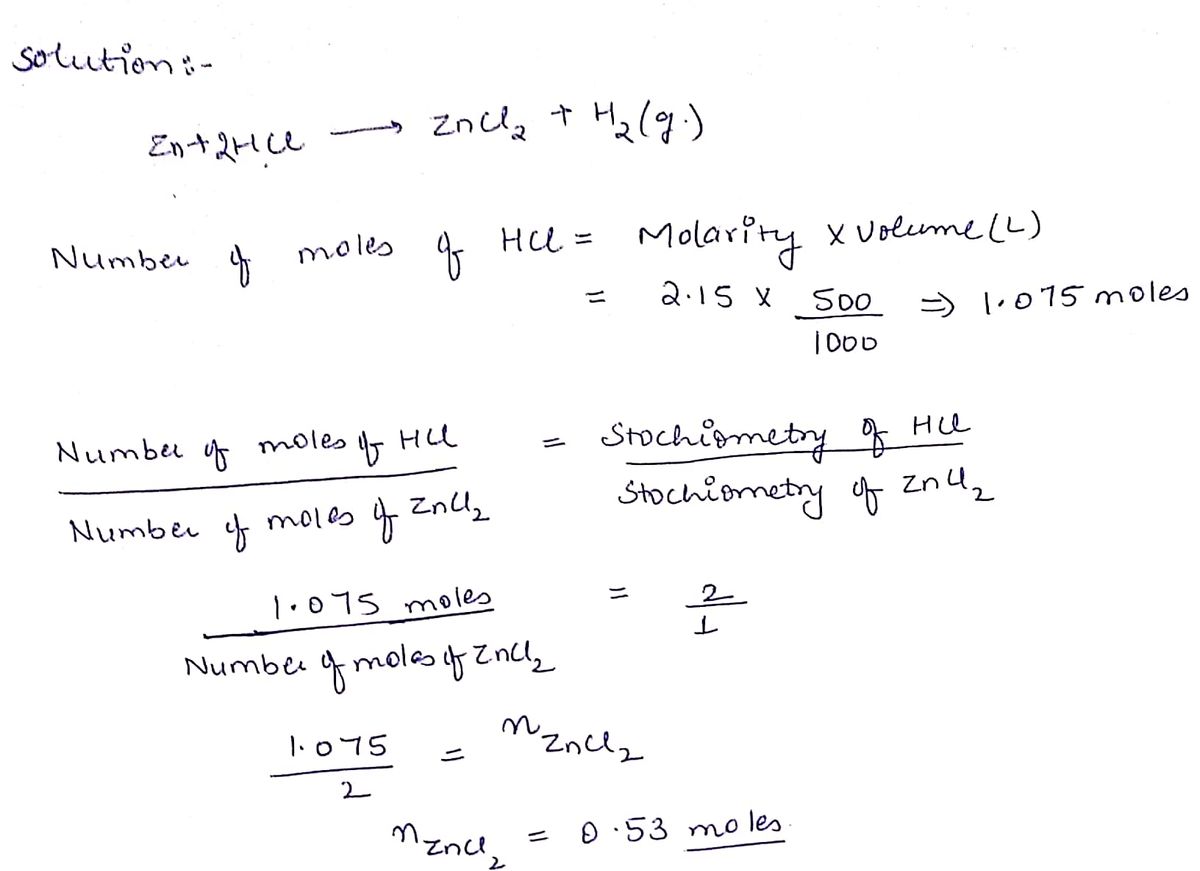 Solution :-
Zn + 2HCl → ZnCl2 + H2(g.)
Number of moles of HCl = Molarity x volume (L)
= 2.15 x 500/1000 ⇒ 1.075 moles
Number of moles of HCl / Number of moles of ZnCl2 = Stochiometry of HCl / Stochiometry of ZnCl2
1.075 moles / Number of moles of ZnCl2 = 2/1
1.075/2 = nZnCl2
nZnCl2 = 0.53 moles.